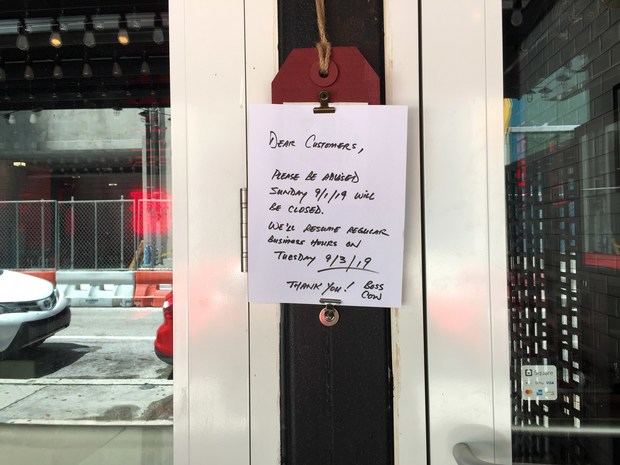 DEAR CUSTOMERS,
PLEASE BE ADVISED
SUNDAY 9/1/19 WILL
BE CLOSED.
WE'LL RESUME REGULAR
BUSINESS HOURS ON
TUESDAY 9/3/19
THANK YOU! BOSS
COW
Square
VISA